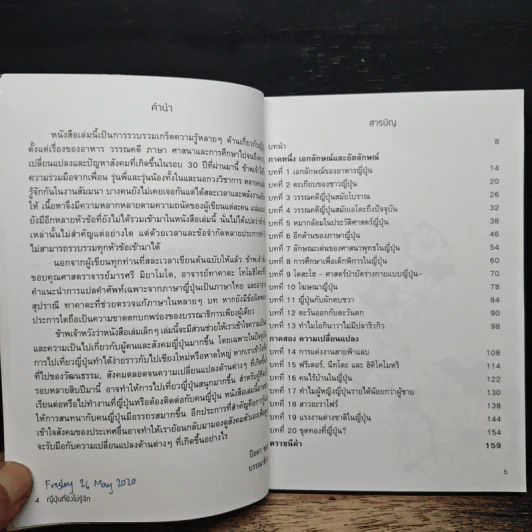 คำนำ
หนังสือเล่มนี้เป็นการรวบรวมเกร็ดความรู้หลายๆ ด้านเกี่ยวกับ
ตั้งแต่เรื่องของอาหาร วรรณคดี ภาษา ศาสนาและการศึกษาไปจนถึง
เปลี่ยนแปลงและปัญหาสังคมที่เกิดขึ้นในรอบ 30 ปีที่ผ่านมานี้
ความร่วมมือจากเพื่อน รุ่นพี่และรุ่นน้องทั้งในและนอกวงวิชาการ
รู้จักกันในงานสัมมนา บางคนยังไม่เคยเจอกันแต่ได้สละเวลาและพลังงาน
ให้ เนื้อหาจึงมีความหลากหลายตามความถนัดของผู้เขียนแต่ละคน
ยังมีอีกหลายหัวข้อที่ยังไม่ได้รวมเข้ามาในหนังสือเล่มนี้ นั่นไม่ได้แปลว่า
เหล่านั้นไม่สำคัญแต่อย่างใด แต่ด้วยเวลาและข้อจำกัดหลายประการ
ไม่สามารถรวบรวมทุกหัวข้อเข้ามาได้
นอกจากผู้เขียนทุกท่านที่สละเวลาเขียนต้นฉบับให้แล้ว
ขอบคุณศาสตราจารย์มารศรี มิยาโมโต, อาจารย์ทาคาดะ
คำแนะนำการแปลคำศัพท์เฉพาะจากภาษาญี่ปุ่นเป็นภาษาไทย และ
สุปราณี ทาคาดะที่ช่วยตรวจแก้ภาษาในหลายๆ บท หากยังมี
ประการใดถือเป็นความขาดตกบกพร่องของบรรณาธิการเพียงผู้เดียว
ข้าพเจ้าหวังว่าหนังสือเล่มเล็กๆ เล่มนี้จะมีส่วนช่วยให้เราเข้าใจ
และความเป็นไปเกี่ยวกับผู้คนและสังคมญี่ปุ่นมากขึ้น โดยเฉพาะ
การไปเที่ยวญี่ปุ่นทำได้ง่ายราวกับไปเชียงใหม่หรือหาดใหญ่
ที่ไปของวัฒนธรรม, สังคมตลอดจนความเปลี่ยนแปลงด้านต่างๆ
รอบหลายสิบปีมานี้ อาจทำให้การไปเที่ยวญี่ปุ่นสนุกมากขึ้น
เรียนต่อหรือไปทำงานที่ญี่ปุ่นหรือต้องติดต่อกับคนญี่ปุ่น
ให้การสนทนากับคนญี่ปุ่นมีอรรถรสมากขึ้น อีกประการที่สำคัญคือการ
เข้าใจสังคมของประเทศอื่นอาจทำให้เราย้อนกลับมามองดูสังคม
จะรับมือกับความเปลี่ยนแปลงด้านต่างๆ ที่เกิดขึ้นอย่างไร
26 May 2020
4 ญี่ปุ่นที่ยังไม่รู้จัก
สารบัญ
บทนำ 8
ภาคหนึ่ง เอกลักษณ์และอัตลักษณ์
บทที่ 1 เอกลักษณ์ของอาหารญี่ปุ่น 14
บทที่ 2 ตะเกียบของชาวญี่ปุ่น 20
บทที่ 3 วรรณคดีญี่ปุ่นสมัยโบราณ 26
บทที่ 4 วรรณคดีญี่ปุ่นสมัยเอโดะถึงปัจจุบัน 32
บทที่ 5 หมากล้อมในประวัติศาสตร์ญี่ปุ่น 40
บทที่ 6 อีกด้านของภาษาญี่ปุ่น 46
บทที่ 7 ลักษณะเด่นของศาสนาพุทธในญี่ปุ่น 54
บทที่ 8 การศึกษาเพื่อเด็กพิการในญี่ปุ่น 60
บทที่ 9 โดสะโฮ - ศาสตร์บำบัดร่างกายแบบญี่ปุ่น- 70
บทที่ 10 โฆษณาญี่ปุ่น 78
บทที่ 11 ญี่ปุ่นกับผักตบชวา 84
บทที่ 12 ตะวันออกกับตะวันตก 90
บทที่ 13 ทำไมโอกินาวาไม่มีปลาริวกิว 98
ภาคสอง ความเปลี่ยนแปลง
บทที่ 14 การแต่งงานสายฟ้าแลบ 108
บทที่ 15 ฟรีเตอร์, นีทโตะ และ ฮิคิโคโมหริ 114
บทที่ 16 คนไร้บ้านในญี่ปุ่น 122
บทที่ 17 ทำไมผู้หญิงญี่ปุ่นรายได้น้อยกว่าผู้ชาย 130
บทที่ 18 สาวอะราโฟร์ 138
บทที่ 19 แรงงานต่างชาติในญี่ปุ่น 144
บทที่ 20 ขุดทองที่ญี่ปุ่น? 150
ดรรชนีคำ 159
5